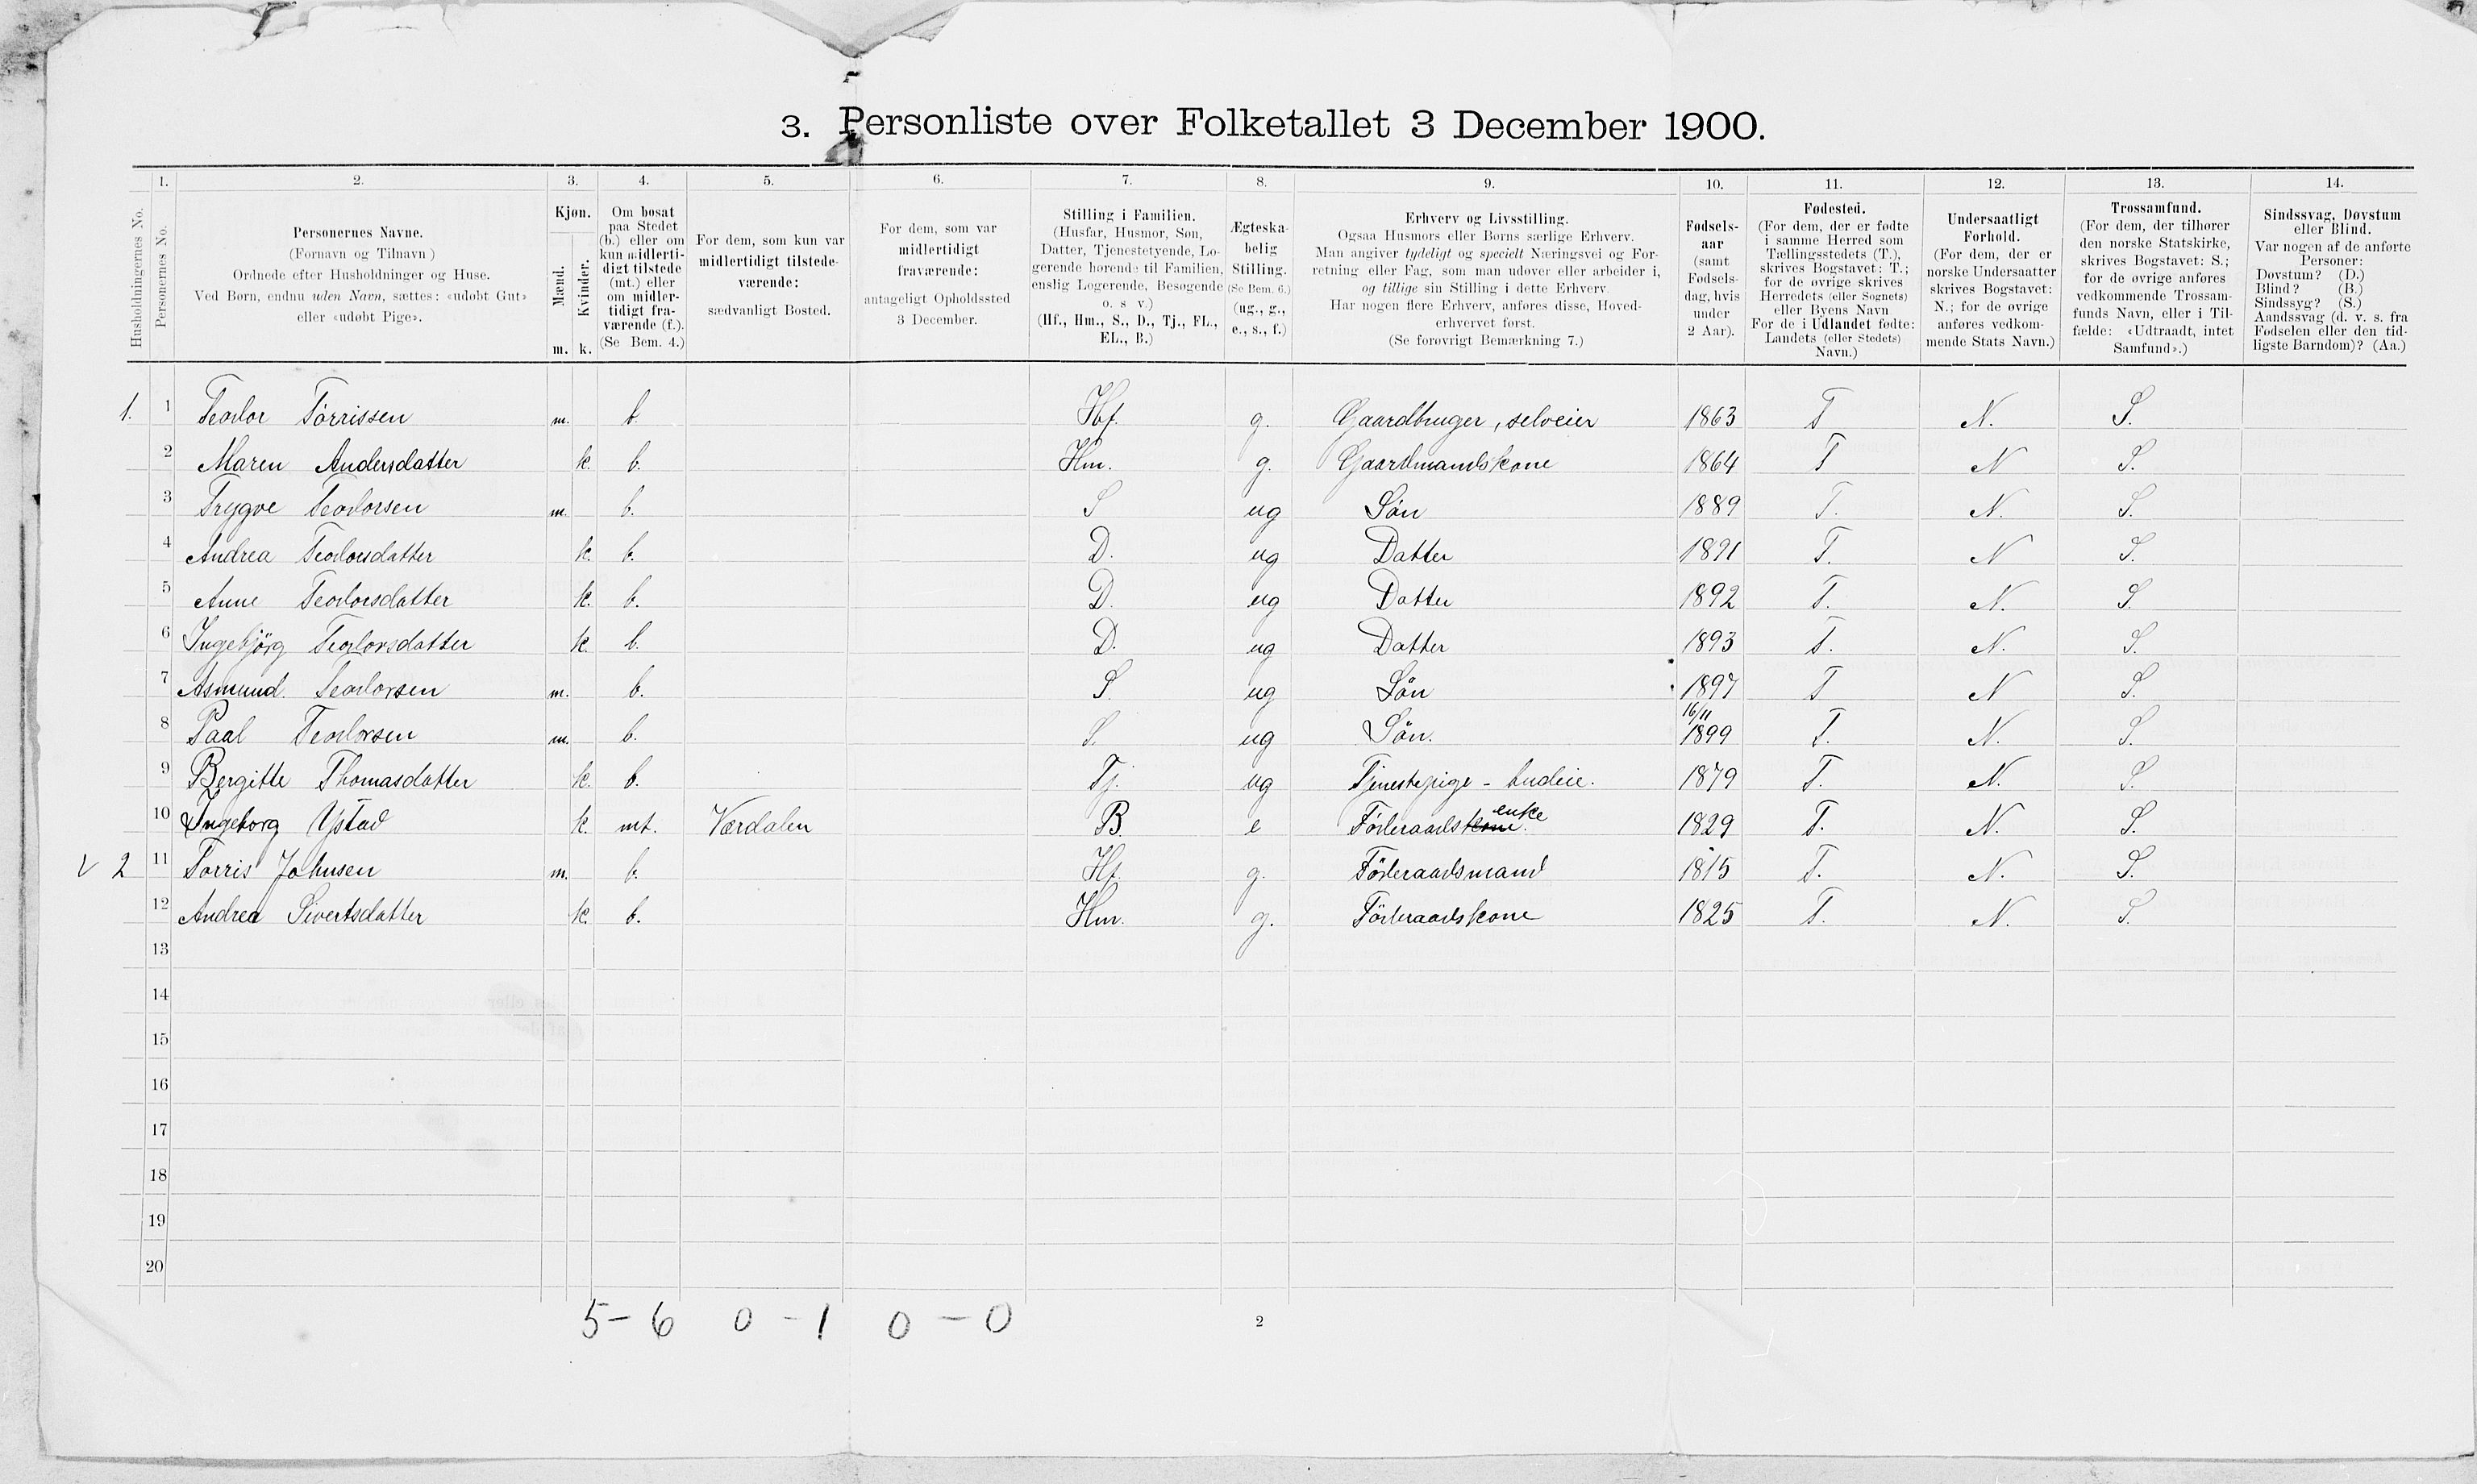 3. Personliste over Folketallet 3 December 1900.
1. 2. 3. 4. 5. 6. 7. 8. 9. 10. 11. 12. 13. 14.
Husholdningernes No.
Personernes No.
Personernes Navne.
(Fornavn og Tilnavn)
Ordnede efter Husholdninger og Huse.
Ved Børn, endnu uden Navn, sættes: «udøbt Gut»
eller «udøbt Pige».
Kjøn.
Mænd.
Kvinder.
m. k.
Om bosat
paa Stedet
(b.) eller om
kun midlerti-
digt tilstede
(mt.) eller
om midler-
tidigt fra-
værende (f.).
(Se Bem. 4.)
For dem, som kun var
midlertidigt tilstede-
værende:
sædvanligt Bosted.
For dem, som var
midlertidigt
fraværende:
antageligt Opholdssted
3 December.
Stilling i Familien.
(Husfar, Husmor, Søn,
Datter, Tjenestetyende, Lo-
gerende hørende til Familien,
enslig Logerende, Besøgende
o. s v.)
(Hf., Hm., S., D., Tj., FL.,
EL., B.)
Ægteska-
belig
Stilling.
(Se Bem. 6.)
(ug., g.,
e., s., f.)
Erhverv og Livsstilling.
Ogsaa Husmors eller Børns særlige Erhverv.
Man angiver tydeligt og specielt Næringsvei og For-
retning eller Fag, som man udøver eller arbeider i,
og tillige sin Stilling i dette Erhverv.
Har nogen flere Erhverv, anføres disse, Hoved-
erhvervet først.
(Se forøvrigt Bemærkning 7.)
Fødsels-
aar
(samt
Fødsels-
dag, hvis
under
2 Aar).
Fødested.
(For dem, der er fødte
i samme Herred som
Tællingsstedets (T.),
skrives Bogstavet: T.;
for de øvrige skrives
Herredets (eller Sognets)
eller Byens Navn
For de i Udlandet fødte:
Landets (eller Stedets)
Navn.)
Undersaatligt
Forhold.
(For dem, der er
norske Undersaatter
skrives Bogstavet:
N.; for de øvrige
anføres vedkom-
mende Stats Navn.)
Trossamfund.
(For dem, der tilhører
den norske Statskirke,
skrives Bogstavet: S.;
for de øvrige anføres
vedkommende Trossam-
funds Navn, eller i Til-
fælde: «Udtraadt, intet
Samfund».)
Sindssvag, Døvstum
eller Blind.
Var nogen af de anførte
Personer:
Døvstum? (D.)
Blind? (B.)
Sindssyg? (S.)
Aandssvag (d. v. s. fra
Fødselen eller den tid-
ligste Barndom)? (Aa.)
1. 1 Teodor Tørrissen m. b. Hf. g. Gaardbruger, selveier 1863 T N. S.
2 Maren Andersdatter k. b. Hm. g. Gaardmandskone 1864 T N S.
3 Trygve Teodorsen m. b. S ug Søn 1889 T. N. S.
4 Andrea Teodorsdatter k. b. D. ug Datter 1891 T. N S.
5 Anne Teodorsdatter k. b. D. ug Datter 1892 T. N. S.
6 Ingebjörg Teodorsdatter k. b. D. ug Datter 1893 T. N. S.
7 Asmund Teodorsen m. b. S. ug Sön 1897 T N S.
8 Paal Teodorsen m. b. S. ug Sön. 16/11 1899 T. N. S.
9 Bergitte Thomasdatter k. b. Tj. ug Tjenestepige - budeie. 1879 T. N. S.
10 Ingeborg Ystad k. mt. Værdalen B e Föderaadskone enke 1829 T. N. S.
v 2 11 Torris Johnsen m. b. Hf. g. Föderaadsmand 1815 T. N. S.
12 Andrea Sivertsdatter k. b. Hm. g. Föderaadskone 1825 T. N. S.
13
14
15
16
17
18
19
20
5 - 6 0 - 1 0 - 0
2